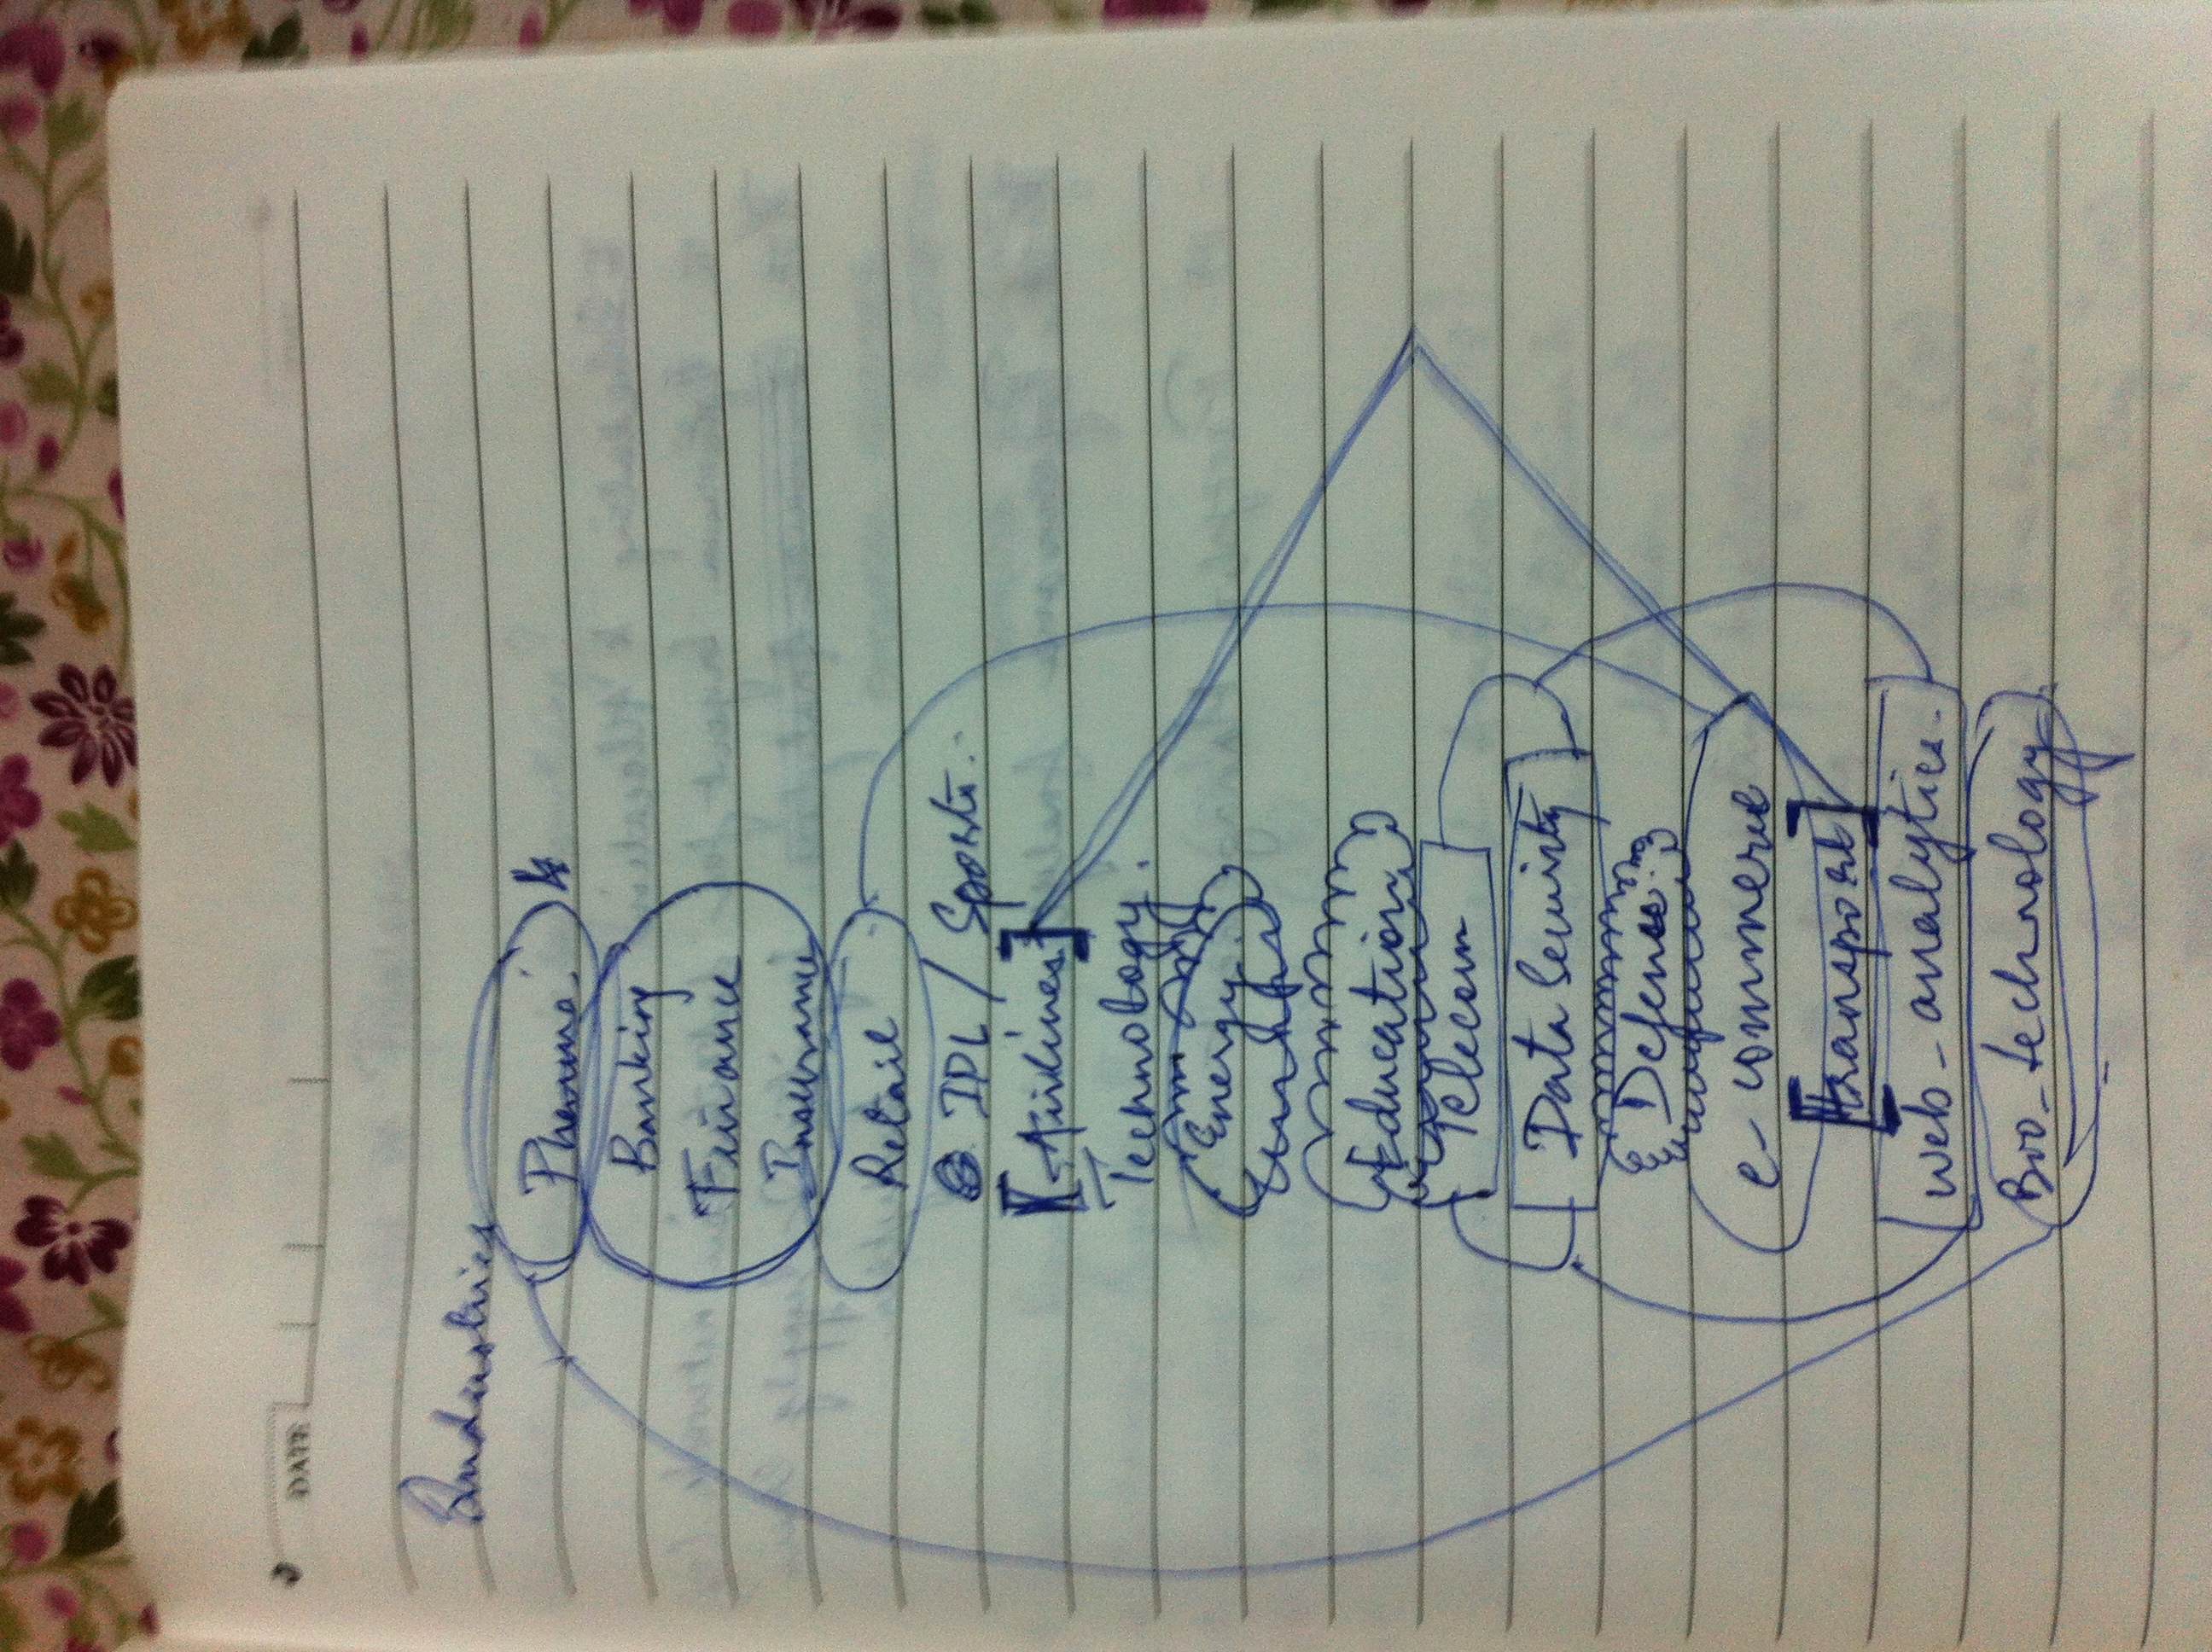 DATE
Industries
Pharma
Banking
Finance
Insurance
Retail
IPL / Sports
[Airlines]
Technology.
Energy
Education
Telecom
Data Security
Defence
e-commerce
[transport]
web-analytics
Bio-technology